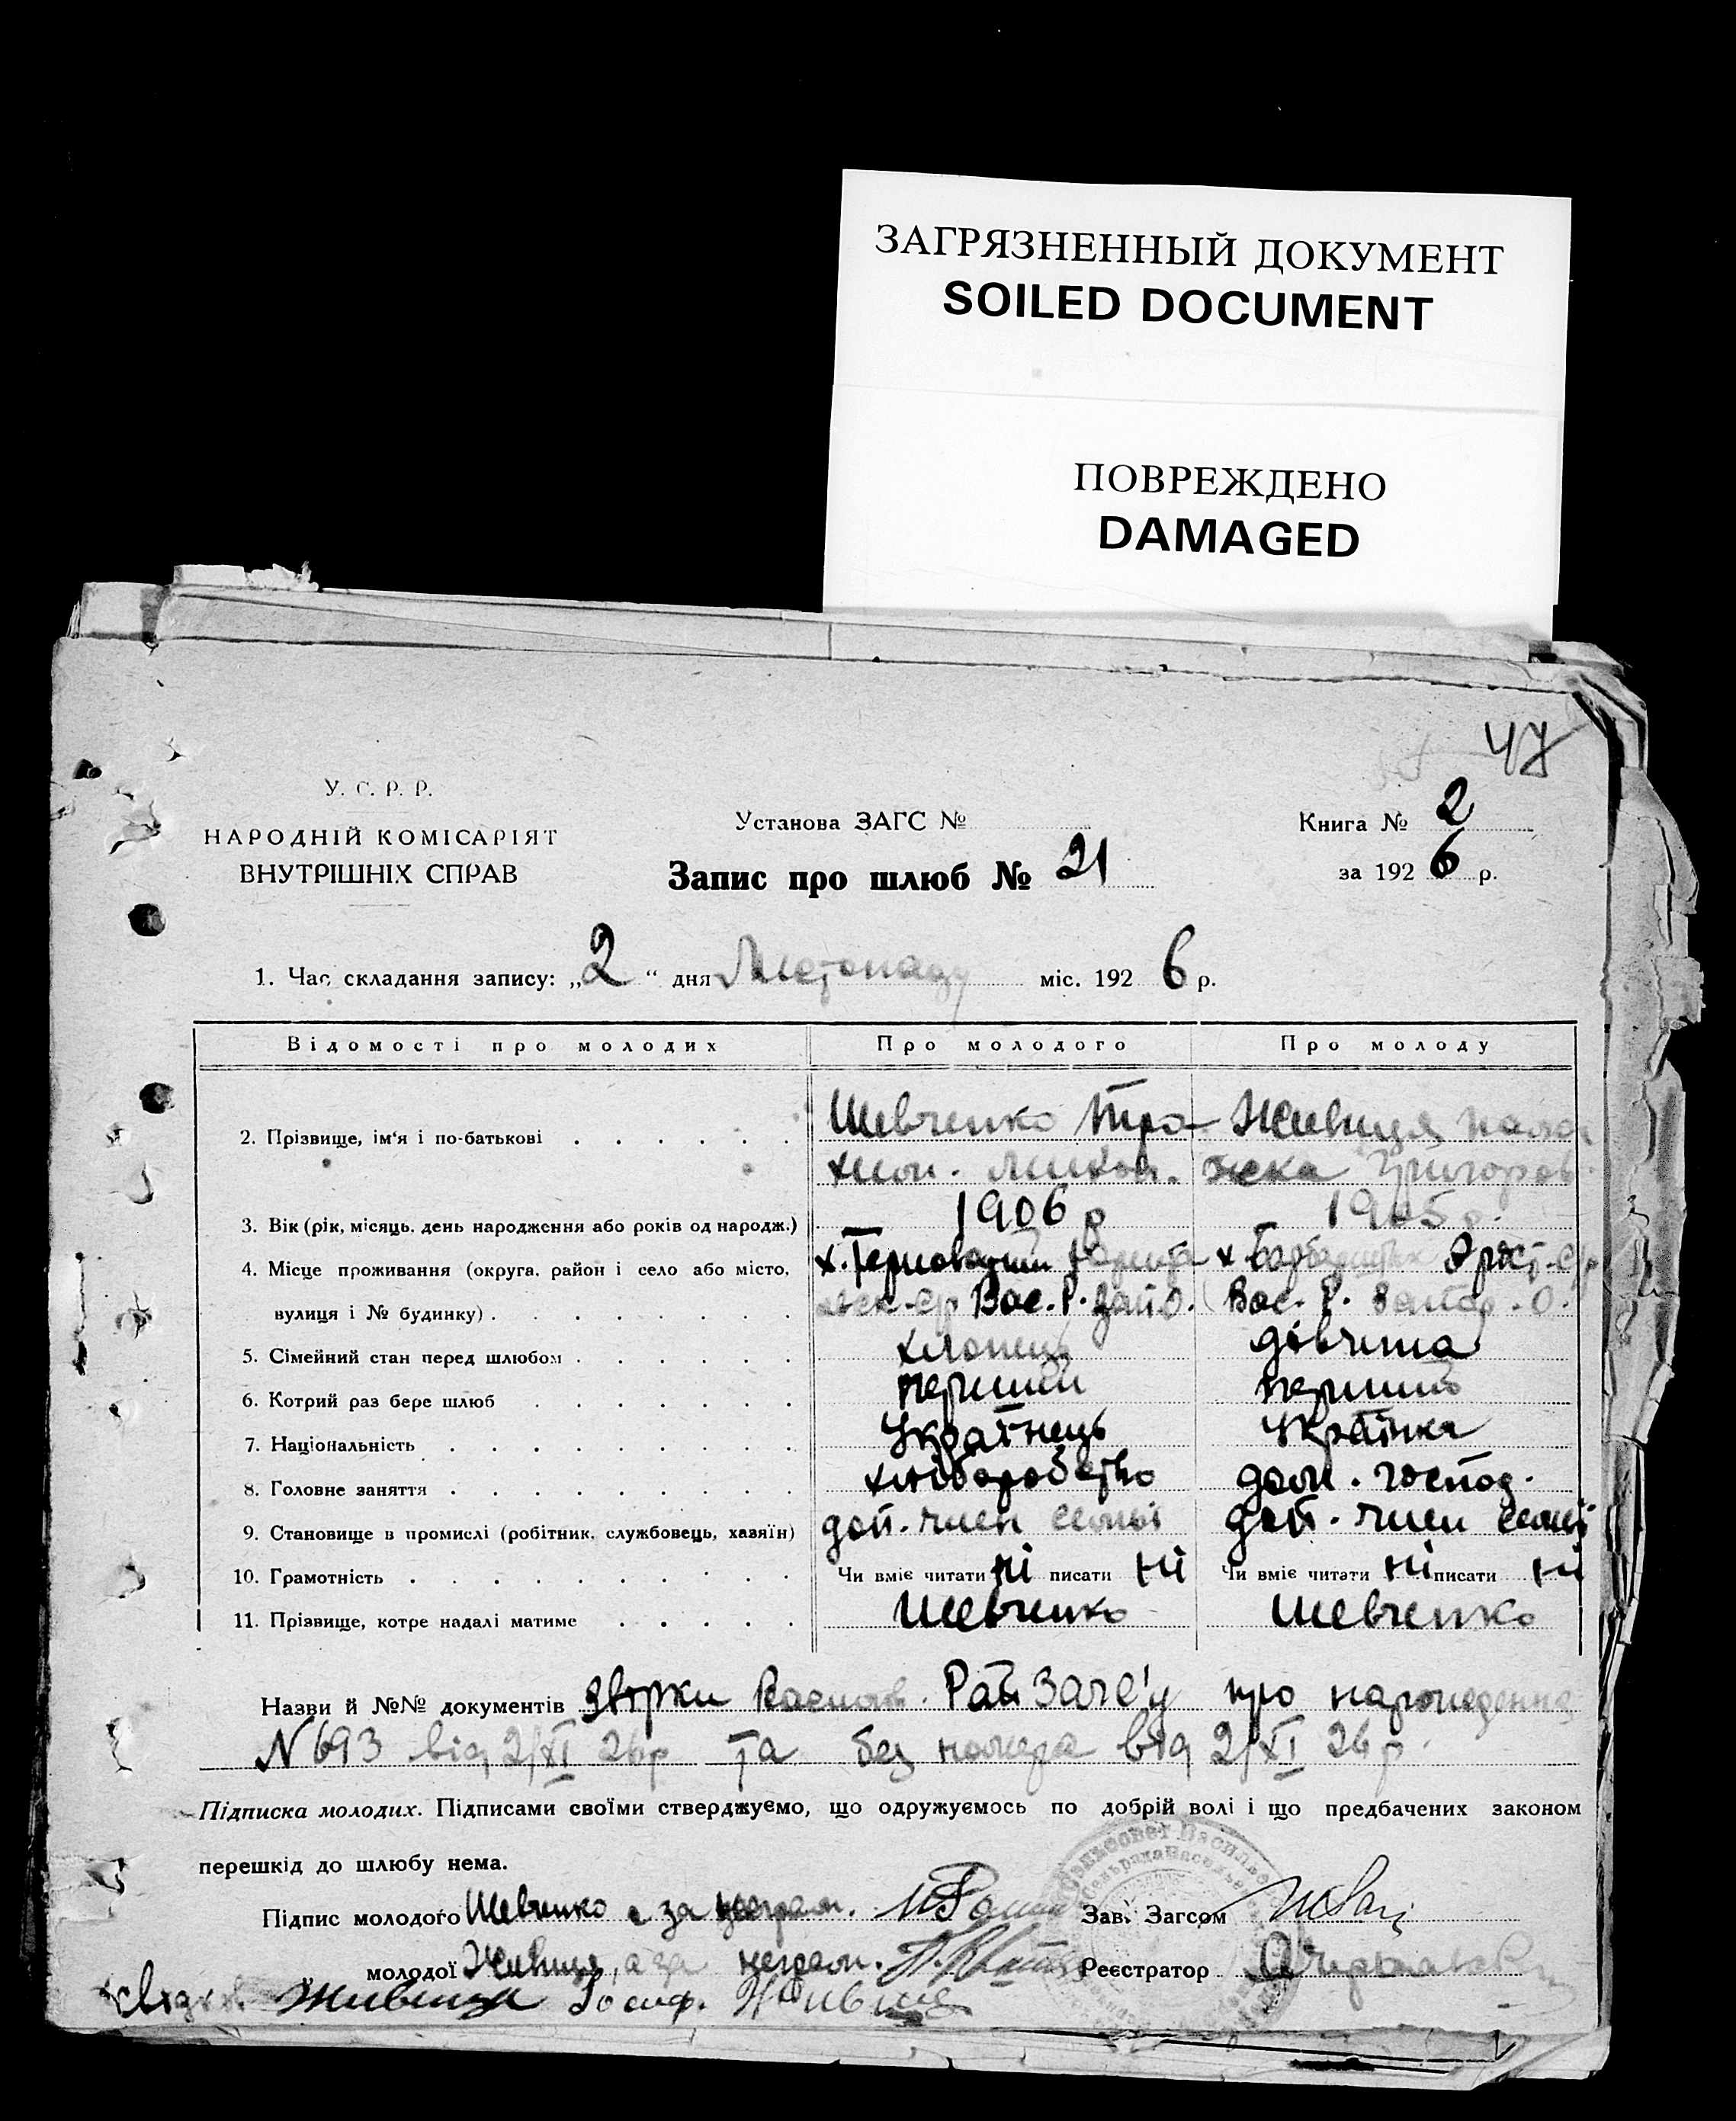 ЗАГРЯЗНЕННЫЙ ДОКУМЕНТ
SOILED DOCUMENT
ПОВРЕЖДЕНО
DAMAGED
47
У. С. Р. Р.
НАРОДНІЙ КОМІСАРІЯТ
ВНУТРІШНІХ СПРАВ
Установа ЗАГС №
Запис про шлюб № 21
Книга № 2
за 1926 р.
1. Час складання запису: „2“ дня Листопаду міс. 1926 р.
Відомості про молодих Про молодого Про молоду
2. Прізвище, ім'я і по-батькові Шевченко Тро- Живиця Пала
хим. Миков. жка Григоров.
3. Вік (рік, місяць, день народження або років од народж.) 1906 р 1905 р.
4. Місце проживання (округа, район і село або місто, х. Терноватий х.
вулиця і № будинку) Вас. Р. Зап О. Вас. Р. Запор. О.
5. Сімейний стан перед шлюбом хлопець дівчина
6. Котрий раз бере шлюб перший перший
7. Національність Українець Українка
8. Головне заняття хліборобство дом. господ.
9. Становище в промислі (робітник, службовець, хазяїн) доп. член семьї доп. член семьї
10. Грамотність Чи вміє читати ні писати ні Чи вміє читати ні писати ні
11. Прізвище, котре надалі матиме Шевченко Шевченко
Назви й №№ документів Рай Загс'у про народження
N 693 від 2/XI 26р та без номера від 2/XI 26 р.
Підписка молодих. Підписами своїми стверджуємо, що одружуємось по добрій волі і що предбачених законом
перешкід до шлюбу нема.
Підпис молодого Шевченко а за неграм. Зав. Загсом
молодої Живиця, а за неграм. Реєстратор
Живиця Іосиф. Живиця